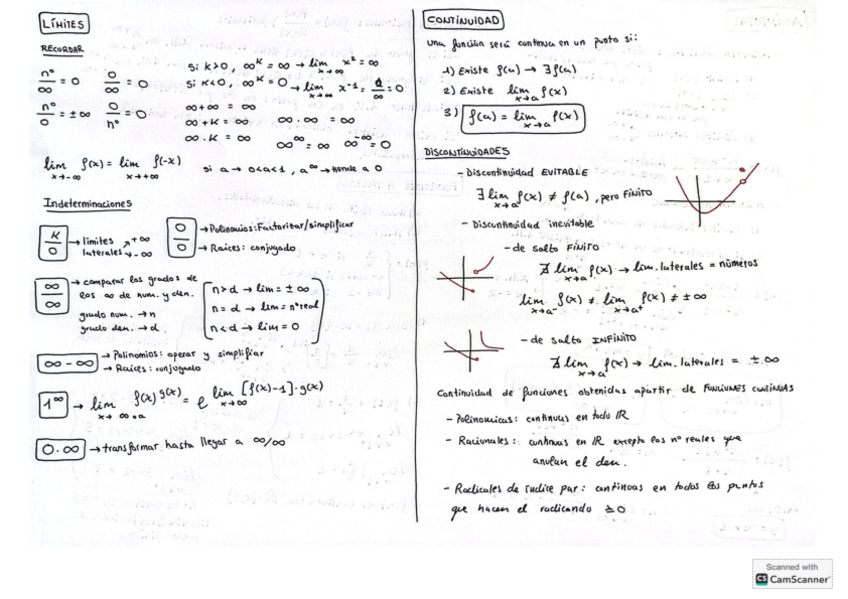 LÍMITES
RECORDAR
nº/∞ = 0   0/∞ = 0
nº/0 = ±∞   0/nº = 0
si k>0, ∞^k = ∞ → lim x→∞ x² = ∞
si k<0, ∞^k = 0 → lim x→∞ x⁻² = 1/∞ = 0
∞+∞ = ∞
∞+k = ∞   ∞·∞ = ∞
∞·k = ∞   ∞^∞ = ∞   ∞^-∞ = 0
lim x→-∞ f(x) = lim x→+∞ f(-x)   si a → 0<a<1, a^∞ → tiende a 0
Indeterminaciones
k/0 → límites laterales → +∞ → -∞
0/0 → Polinomios: Factorizar/simplificar
→ Raíces: conjugado
∞/∞ → comparar los grados de
los ∞ de num. y den.
grado num. → n
grado den. → d
n>d → lim = ±∞
n=d → lim = nº real
n<d → lim = 0
∞-∞ → Polinomios: operar y simplifiar
→ Raíces: conjugado
1^∞ → lim x→∞ o a f(x)^g(x) = e^lim x→∞ [f(x)-1]·g(x)
0·∞ → transformar hasta llegar a ∞/∞
CONTINUIDAD
una función será continua en un punto si:
1) Existe f(a) → ∃f(a)
2) Existe lim x→a f(x)
3) f(a) = lim x→a f(x)
DISCONTINUIDADES
- Discontinuidad EVITABLE
∃ lim x→a f(x) ≠ f(a), pero FINITO
- Discontinuidad inevitable
- de salto FINITO
∄ lim x→a f(x) → lim. laterales = números
lim x→a⁻ f(x) ≠ lim x→a⁺ f(x) ≠ ±∞
- de salto INFINITO
∄ lim x→a f(x) → lim. laterales = ±∞
Continuidad de funciones obtenidas apartir de FUNCIONES CONTINUAS
- Polinomicas: continuas en todo ℝ
- Racionales: continuas en ℝ excepto los nº reales que
anulan el den.
- Radicales de índice par: continuas en todos los puntos
que hacen el radicando ≥0
Scanned with
CS CamScanner